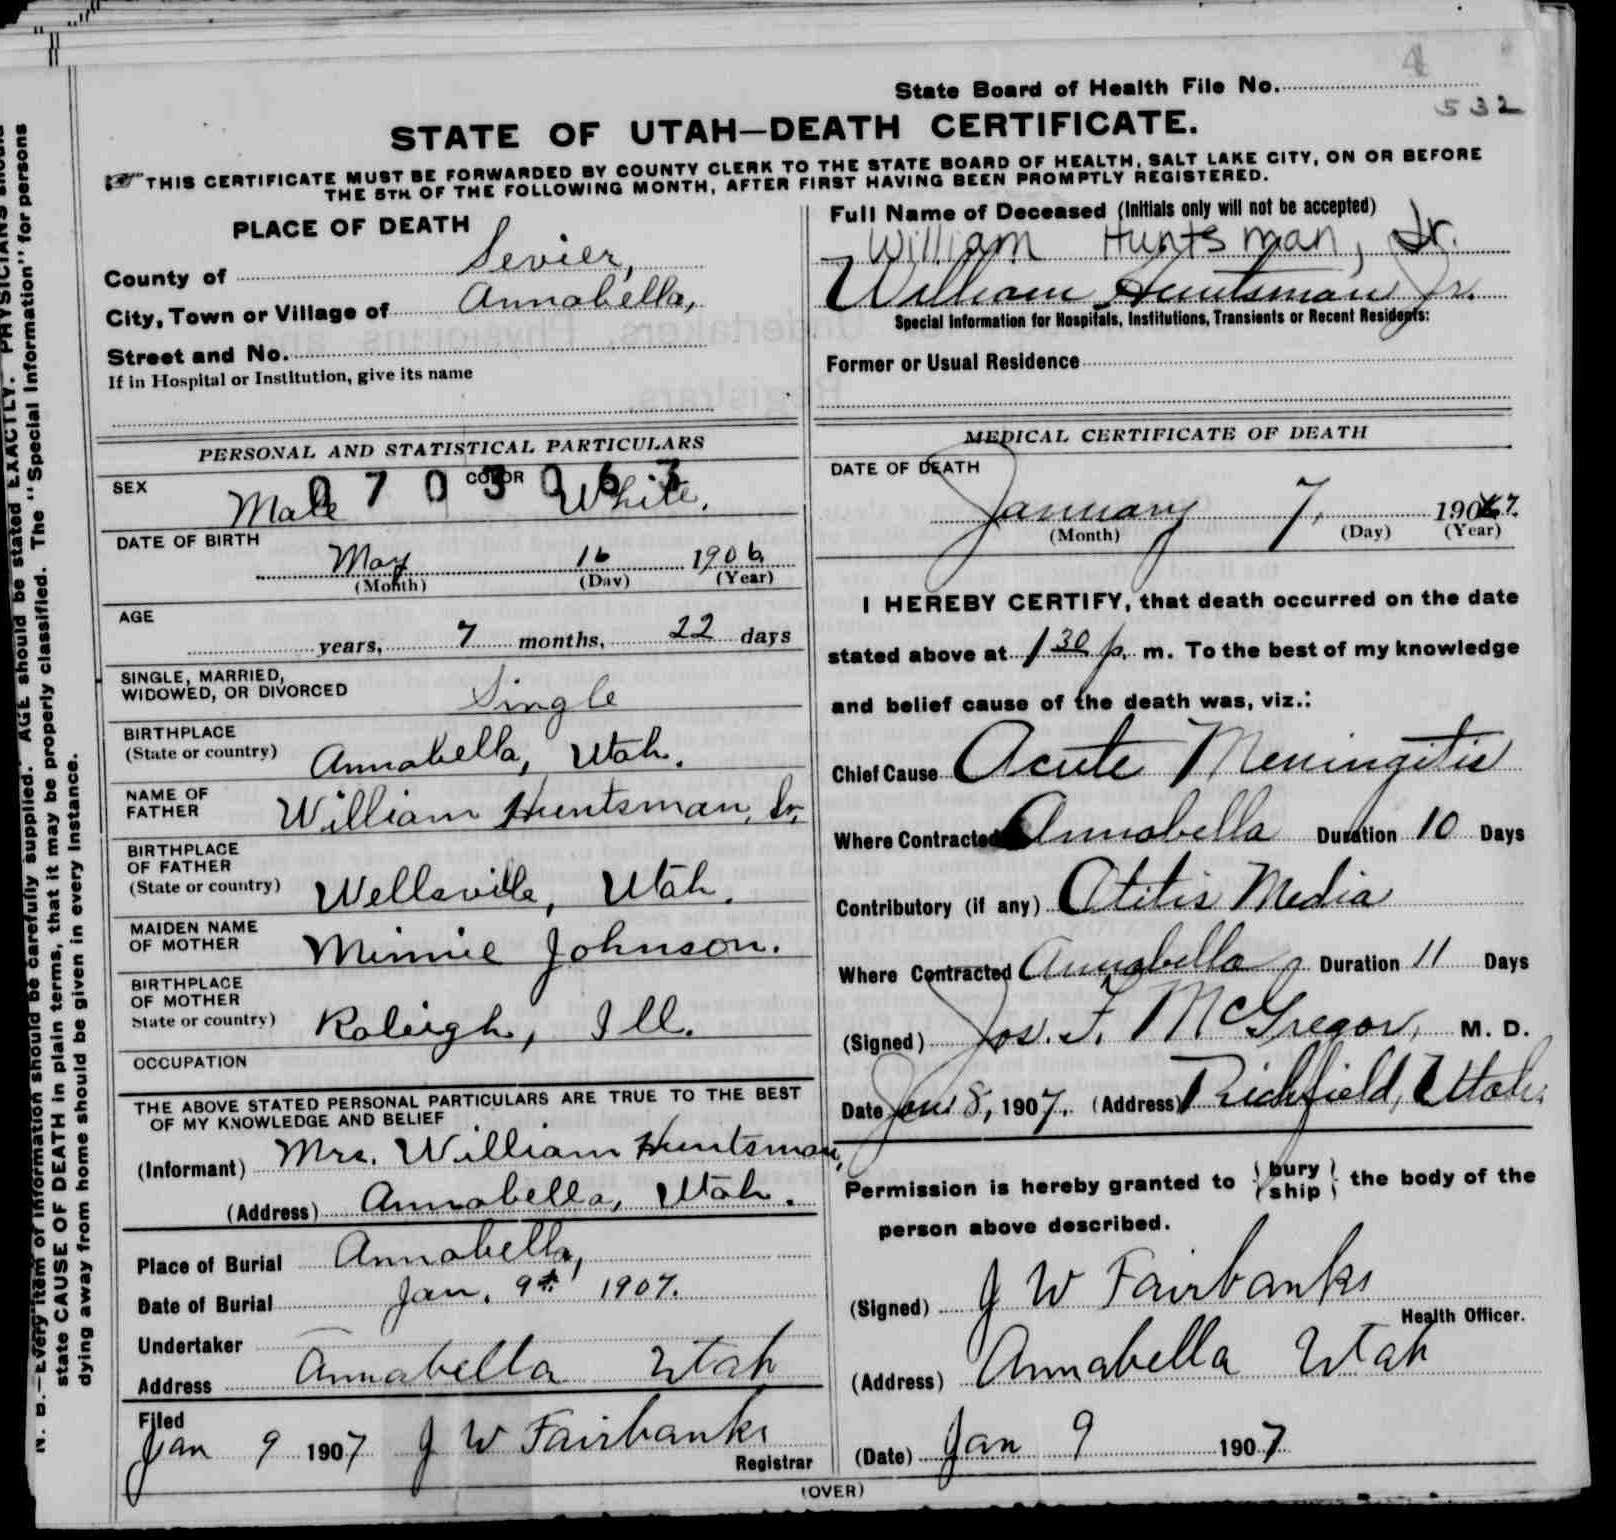 State Board of Health File No. 4
532
STATE OF UTAH—DEATH CERTIFICATE.
THIS CERTIFICATE MUST BE FORWARDED BY COUNTY CLERK TO THE STATE BOARD OF HEALTH, SALT LAKE CITY, ON OR BEFORE
THE 5TH OF THE FOLLOWING MONTH, AFTER FIRST HAVING BEEN PROMPTLY REGISTERED.
PLACE OF DEATH
County of Sevier,
City, Town or Village of Annabella,
Street and No.
If in Hospital or Institution, give its name
Full Name of Deceased (Initials only will not be accepted)
William Huntsman, Jr.
William Huntsman Jr.
Special Information for Hospitals, Institutions, Transients or Recent Residents:
Former or Usual Residence
PERSONAL AND STATISTICAL PARTICULARS
0703063
SEX Male COLOR White.
DATE OF BIRTH
May 16 1906
(Month) (Day) (Year)
AGE
years, 7 months, 22 days
SINGLE, MARRIED,
WIDOWED, OR DIVORCED Single
BIRTHPLACE
(State or country) Annabella, Utah.
NAME OF
FATHER William Huntsman, Sr,
BIRTHPLACE
OF FATHER
(State or country) Wellsville, Utah.
MAIDEN NAME
OF MOTHER Minnie Johnson.
BIRTHPLACE
OF MOTHER
State or country) Raleigh, Ill.
OCCUPATION
THE ABOVE STATED PERSONAL PARTICULARS ARE TRUE TO THE BEST
OF MY KNOWLEDGE AND BELIEF
(Informant) Mrs. William Huntsman,
(Address) Annabella, Utah.
Place of Burial Annabella,
Date of Burial Jan. 9th 1907.
Undertaker
Address Annabella Utah
Filed
Jan 9 1907 J W Fairbanks
Registrar
MEDICAL CERTIFICATE OF DEATH
DATE OF DEATH
January 7, 1907.
(Month) (Day) (Year)
I HEREBY CERTIFY, that death occurred on the date
stated above at 1 30 p. m. To the best of my knowledge
and belief cause of the death was, viz.:
Chief Cause Acute Meningitis
Where Contracted Annabella Duration 10 Days
Contributory (if any) Otitis Media
Where Contracted Annabella Duration 11 Days
(Signed) Jos. F. McGregor, M. D.
Date Jan 8, 1907. (Address) Richfield, Utah.
Permission is hereby granted to {bury
ship} the body of the
person above described.
(Signed) J W Fairbanks
Health Officer.
(Address) Annabella Utah
(Date) Jan 9 1907
(OVER)
N. B.—Every item of information should be carefully supplied. AGE should be stated EXACTLY. PHYSICIANS should
state CAUSE OF DEATH in plain terms, that it may be properly classified. The "Special Information" for persons
dying away from home should be given in every instance.